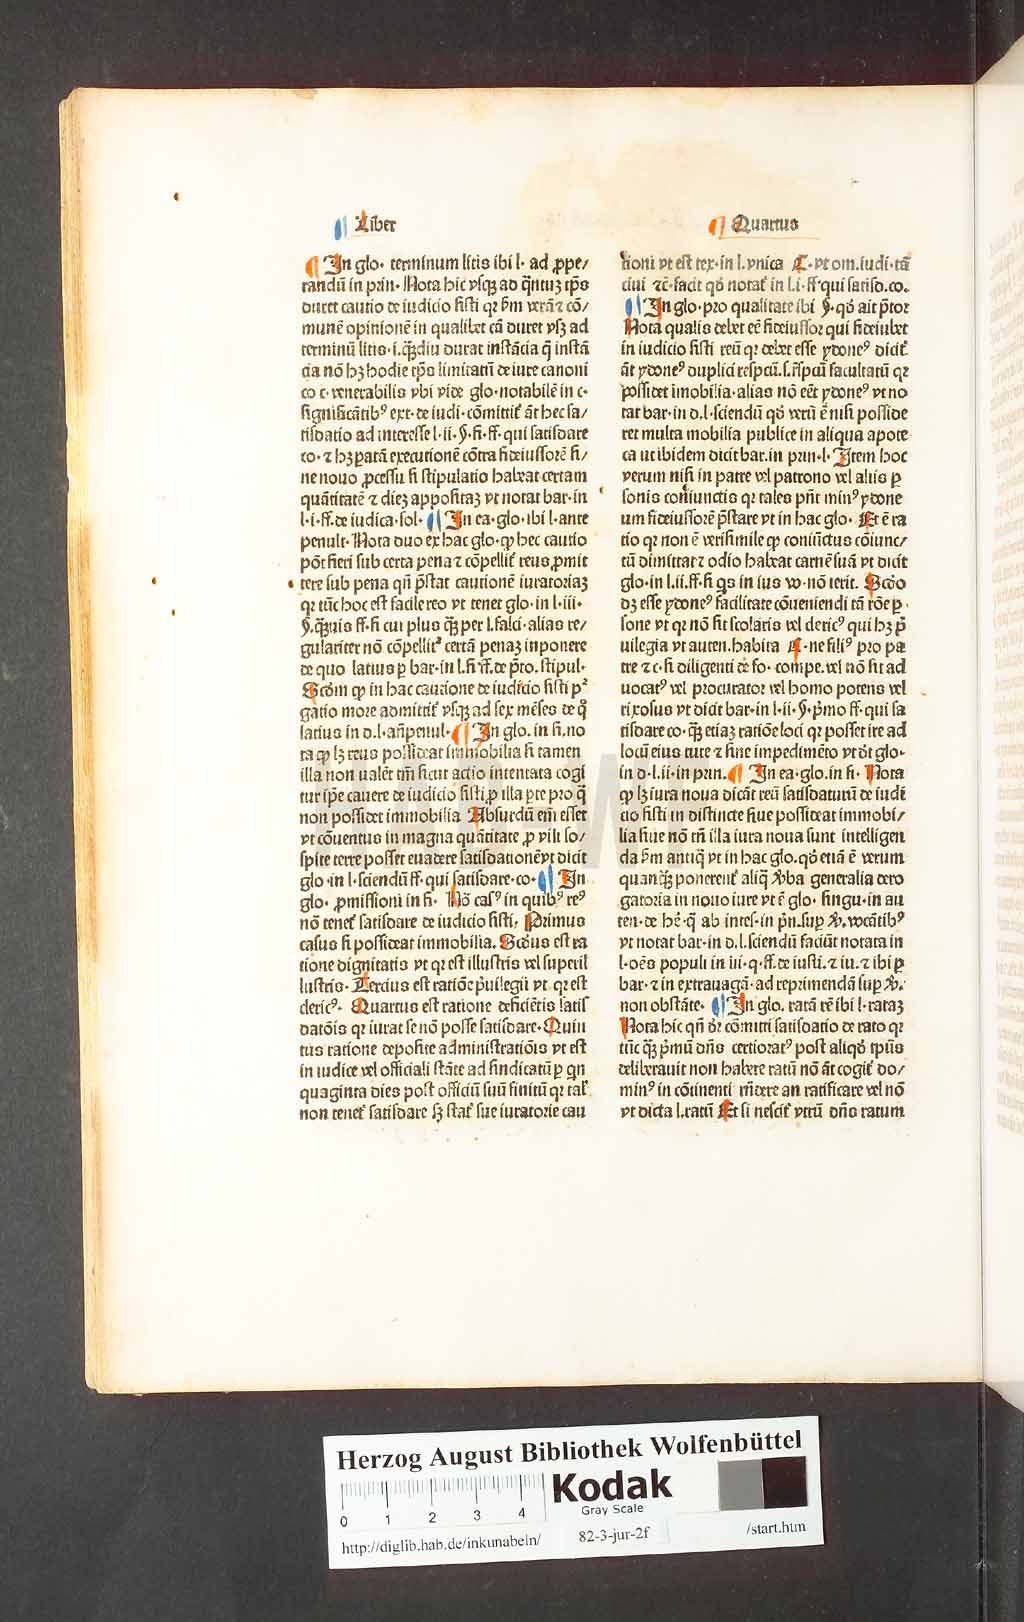 Liber
Quartus
In glo· terminum litis ibi l· ad ꝓpe/
tandū in prin· Nota hic vsqꝫ ad q̄ntuꝫ tp̄s
duret cautio de iudicio sisti qꝛ ẜm verā ⁊ cō/
munē opinionē in qualibet cā duret vsqꝫ ad
terminū litis· i· q̄ꝫdiu durat instācia q̄ instā
cia nō hꝫ hodie tp̄s limitatū de iure canoni
co c· venerabilis vbi vide glo· notabilē in c·
significātibꝰ ext· de iudi· cōmittit᷑ āt hec sa/
tisdatio ad interesse l· ii· §· fi· ff· qui satisdare
co· ⁊ hꝫ ꝑatā executionē cōtra fideiussorē si/
ne nouo ꝓcessu si stipulatio habeat certam
quātitatē ⁊ dieꝫ appositaꝫ vt notat bar· in
l· i· ff· de iudica· sol· In ea· glo· ibi l· ante
penult· Nota duo ex hac glo· ꝙ hec cautio
pōt fieri sub certa pena ⁊ cōpellit᷑ reus ꝓmit
tere sub pena qn̄ p̄stat cautionē iuratoriaꝫ
qꝛ tūc hoc est facile reo vt tenet glo· in l· iii·
§· q̄ꝫuis ff· si cui plus q̄ꝫ per l· falci· alias re/
gulariter nō cōpellit᷑ certā penaꝫ inponere
de quo latius ꝑ bar· in l· fi· ff· de p̄to· stipul·
Scd̄m ꝙ in hac cautione de iudicio sisti p᷑
gatio more admittit᷑ vsqꝫ ad sex mēses de q̊
latius in d· l· an̄penul· In glo· in fi· no
ta ꝙ lꝫ reus possideat immobilia si tamen
illa non valēt tm̄ sicut actio intentata cogi
tur ip̄e cauere de iudicio sisti ꝓ illa ꝑte pro q̄
non possidet immobilia Absurdū em̄ esset
vt cōuentus in magna quātitate ꝓ vili so/
spite terre posset euadere satisdationē vt dicit
glo· in l· sciendū ff· qui satisdare· co· In
glo· ꝓmissioni in fi· Nō casꝰ in quibꝰ reꝰ
nō tenet᷑ satisdare de iudicio sisti· Primus
casus si possideat immobilia. Scd̄us est ra
tione dignitatis vt qꝛ est illustris vel superil
lustris· Tercius est ratiōe p̄uilegii vt qꝛ est
clericꝰ· Quartus est ratione deficiētis satis
datōis qꝛ iurat se nō posse satisdare· Quin
tus ratione deposite administratiōis vt est
in iudice vel officiali stāte ad sindicatū ꝑ qn
quaginta dies post officiū suū finitū qꝛ tal᷑
non tenet᷑ satisdare sꝫ stat᷑ sue iuratorie cau
tioni vt est tex· in l· vnica C· vt om· iudi· tā
ciui ⁊c̄· facit qd̊ notat᷑ in l· i· ff· qui satisd. co.
In glo· pro qualitate ibi §· qd̊ ait p̄tor
Nota qualis debet eē fideiussor qui fideiubet
in iudicio sisti reū qꝛ debet esse ydoneꝰ dicit᷑
āt ydoneꝰ duplici respcū· s· r̄spcū facultatū qꝛ
possidet īmobilia· alias nō eēt ydoneꝰ vt no
tat bar· in d· l· sciendū qd̊ verū ē nisi posside
ret multa mobilia publice in aliqua apote
ca ut ibidem dicit bar. in prin· l· Item hoc
verum nisi in patre vel patrono vel aliis ꝑ
sonis coniunctis qꝛ tales pn̄t minꝰ ydone
um fideiussorē p̄stare vt in hac glo· Et ē ra
tio qꝛ non ē verisimile ꝙ coniūctus cōiunc/
tū dimittat ⁊ odio habeat carnē suā vt dicit
glo· in l. ii. ff· si qs in ius vo· nō ierit. Scd̊o
dꝫ esse ydoneꝰ facilitate cōueniendi tā rōe ꝑ·
sone vt qꝛ nō sit scolaris vel clericꝰ qui hꝫ p̄
uilegia vt auten. habita C· ne filiꝰ pro pa
tre ⁊c· si diligenti de fo· compe. vel nō sit ad
uocatꝰ vel procurator vel homo potens vel
rixosus vt dicit bar· in l· ii· §· p̄mo ff· qui sa
tisdare co· q̄ꝫ etiaꝫ ratiōe loci qꝛ posset ire ad
locū eius tute ⁊ sine impedimēto vt dt̄ glo·
in d· l. ii· in prin. In ea· glo. in fi· Nota
ꝙ lꝫ iura noua dicāt reū satisdaturū de iudi
cio sisti in distincte siue possideat immobi/
lia siue nō tn̄ illa iura noua sunt intelligen
da ẜm antiq̄ vt in hac glo. qd̊ etiā ē verum
quanq̄ꝫ ponerent᷑ aliq̄ v̄ba generalia dero
gatoria in nouo iure vt ē glo· singu· in au
ten· de he᷑· q̄ ab intes· in p̄n. sup v̄. vocātibꝰ
vt notat bar· in d. l. sciendū faciūt notata in
l· oēs populi in iii· q· ff· de iusti· ⁊ iu. ⁊ ibi ꝑ
bar· ⁊ in extrauagā· ad reprimendā sup v̄.
non obstāte· In glo. ratā rē ibi l· rataꝫ
Nota hic qn̄ dꝫ cōmitti satisdatio de rato qꝛ
tūc q̄ꝫ p̄mū dn̄s certioratꝰ post aliqd̊ tp̄us
deliberauit non habere ratū nō āt cogit᷑ do/
minꝰ in cōtinenti r̄ndere an ratificare vel nō
vt dicta l. ratū Et si nescit᷑ vtrū dn̄s ratum
Herzog August Bibliothek Wolfenbüttel
0 1 2 3 4
Kodak
Gray Scale
http://diglib.hab.de/inkunabeln/
82-3-jur-2f
/start.htm
HAB-WF